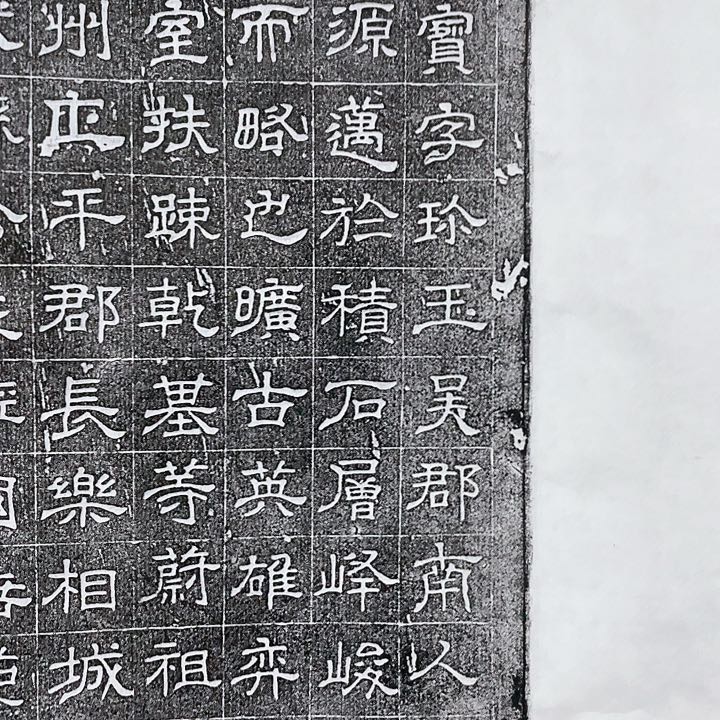 寶字珍玉吳郡南人
源邁於積石層峰峻
而略巳曠古英雄弈
室扶疎乾基等蔚祖
州正平郡長樂相城